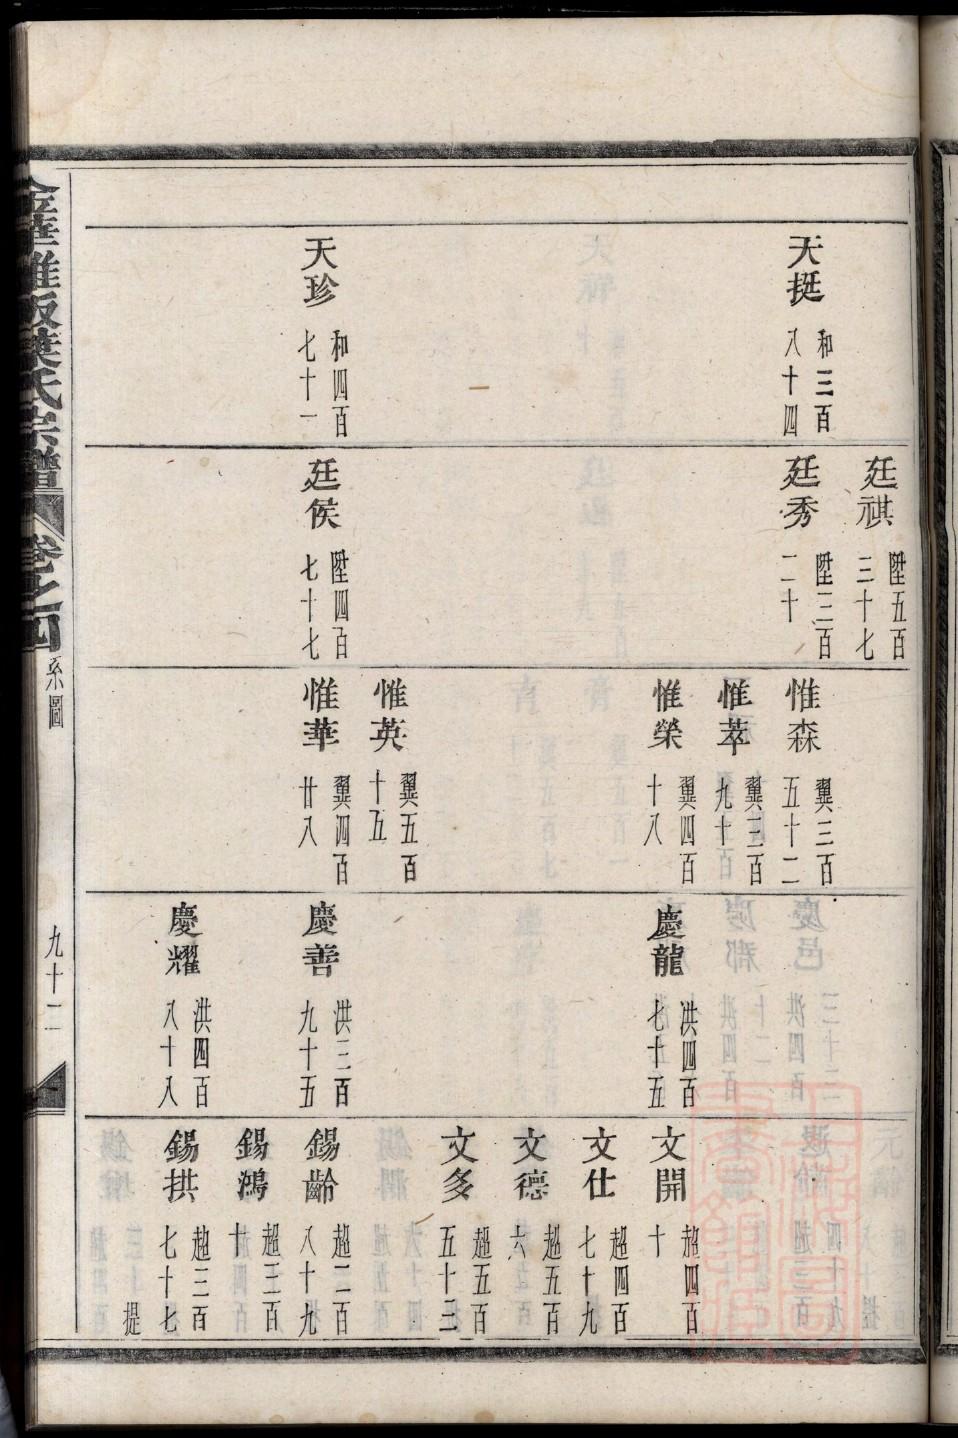 天挺 和三百八十四
天珍 和四百七十一
廷祺 陞五百三十七
廷秀 陞三百二十
廷侯 陞四百七十七
惟森 翼三百五十二
惟萃 翼三百九十
惟榮 翼四百十八
惟英 翼五百十五
惟華 翼四百廿八
慶龍 洪四百七十五
慶善 洪三百九十五
慶耀 洪四百八十八
文開 趄四百十
文仕 趄四百七十九
文德 趄五百六
文多 趄五百五十三
錫齡 趄二百八十九
錫鴻 趄三百十
錫拱 趄三百七十七
提
葉氏宗譜 卷之四 系圖 九十二